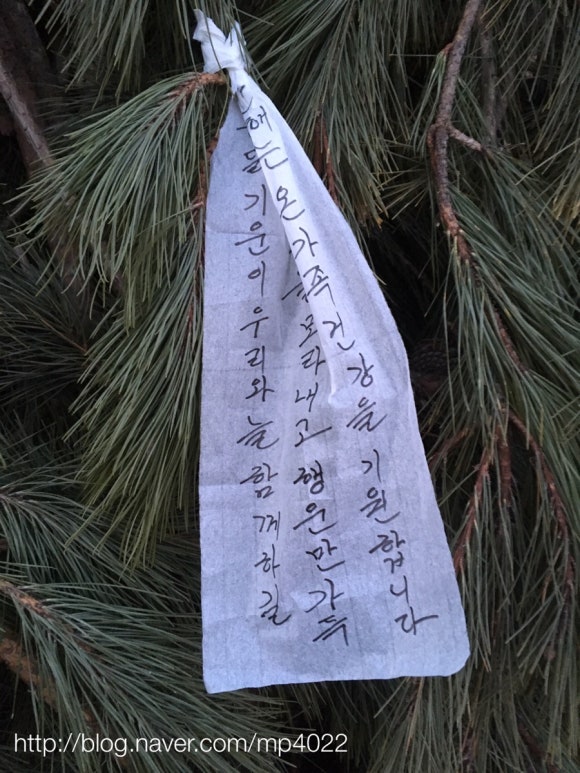 기운이 우리와 늘 함께하길
온 가족 행운만 가득
건강을 기원합니다
http://blog.naver.com/mp4022